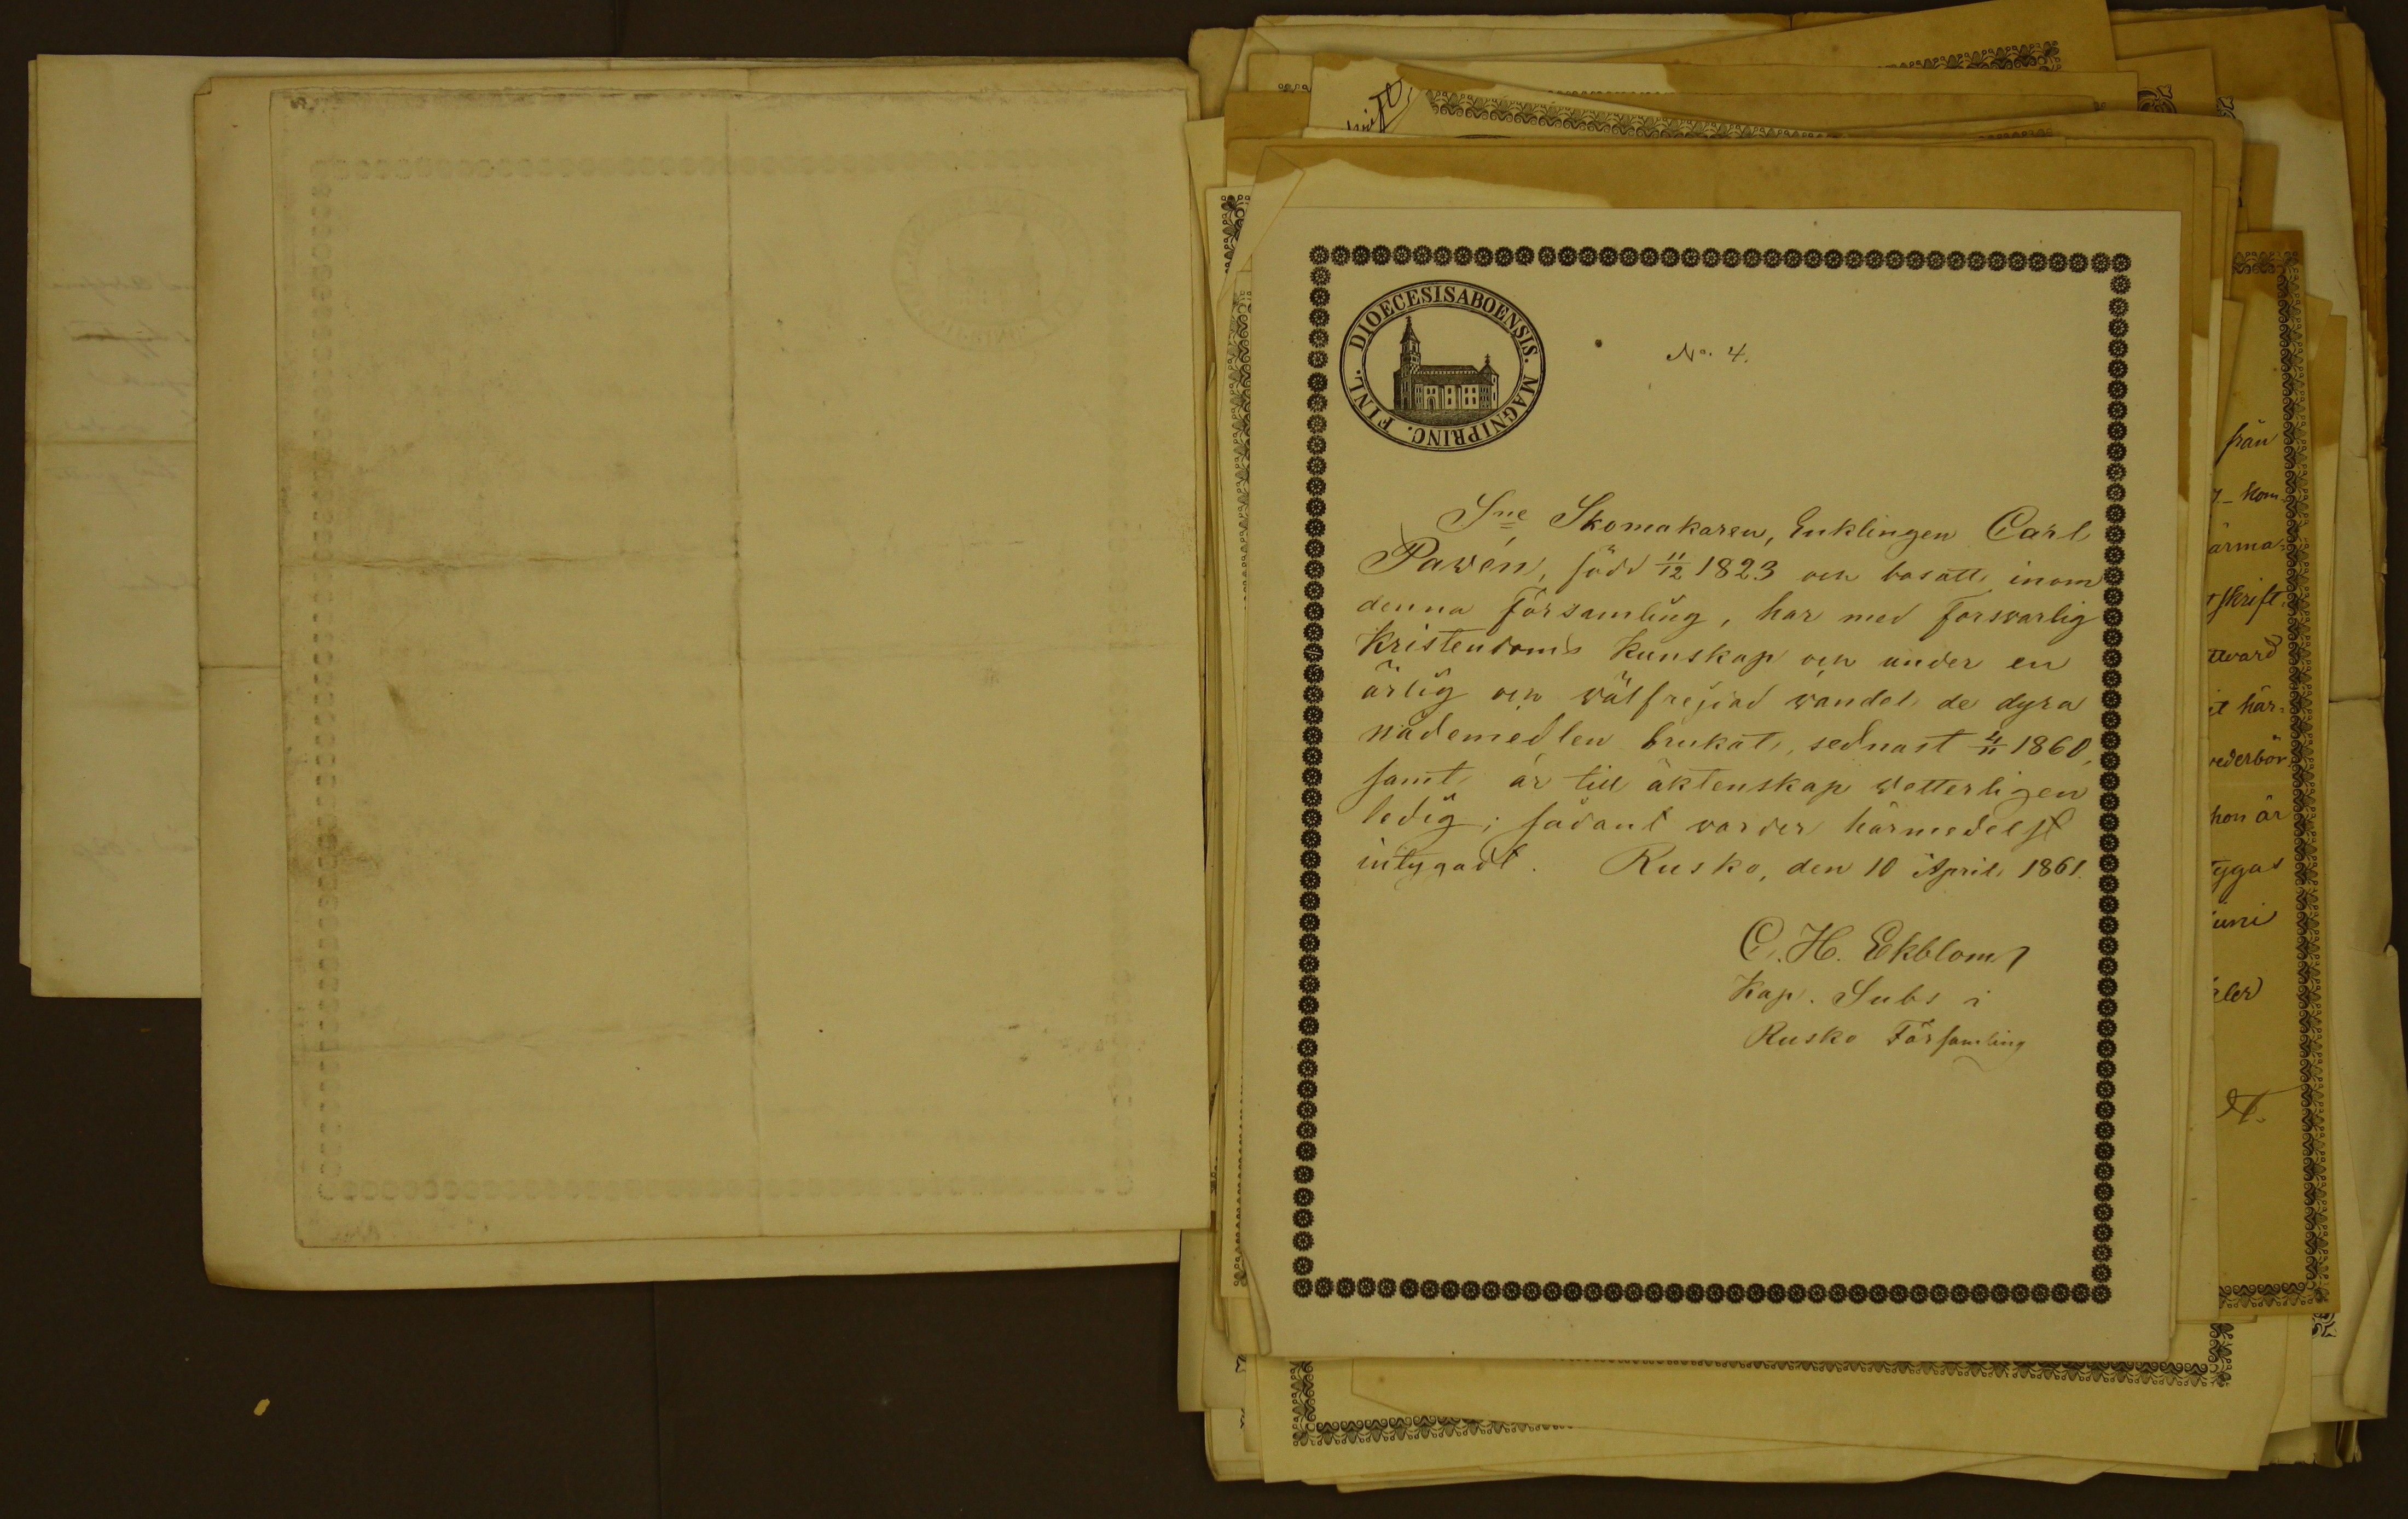 DIOECESIS ABOENSIS. MAGNI PRINC. FINL.
No. 4.
Sne Skomakaren, Enklingen Carl
Pawén, född 11/12 1823 och bosatt inom
denna Församling, har med forsvarlig
Kristendoms Kunskap och under en
ärlig och wälfrejdad wandel de dyra
nådemedlen brukat, sednast 4/11 1860,
samt är till äktenskap wetterligen
ledig; sådant warder härmedelst
intygadt. Rusko, den 10 April 1861.
C. H. Ekblom
Kap. Subs i
Rusko Församling
från
kom
ärma=
skrift,
ttvard
it här=
vederbör
hon är
tygas
uni